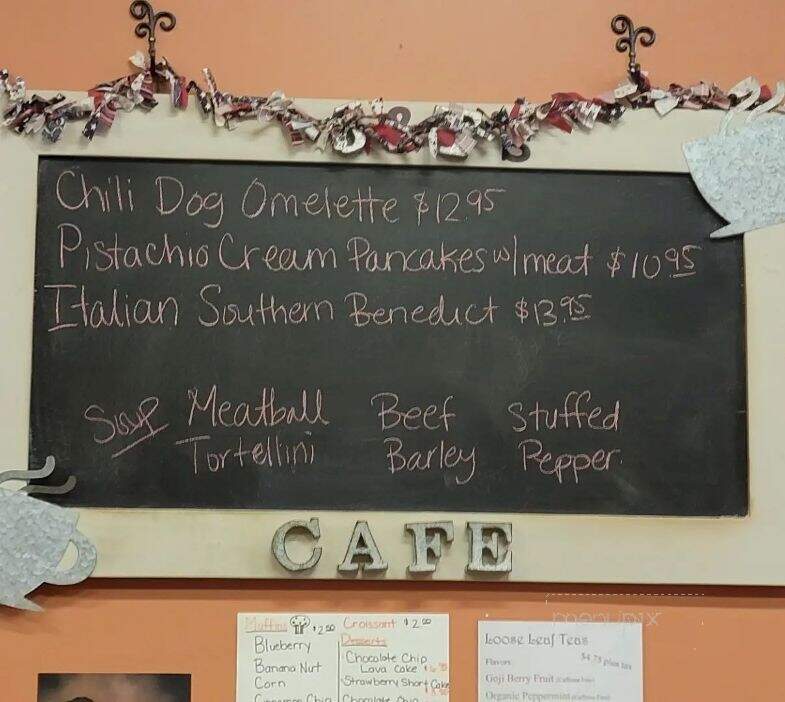 Chili Dog Omelette $12.95
Pistachio Cream Pancakes w/meat $10.95
Italian Southern Benedict $13.95
Soup Meatball Beef Stuffed
Tortellini Barley Pepper
CAFE
menupix
Muffins $2.00 Croissant $2.00
Blueberry
Banana Nut
Corn
Desserts
Chocolate Chip
Lava Cake
Strawberry Short Cake
Chocolate Chip
Loose Leaf Teas
$4.75 plus tax
Flavors:
Goji Berry Fruit (Caffeine Free)
Organic Peppermint (Caffeine Free)